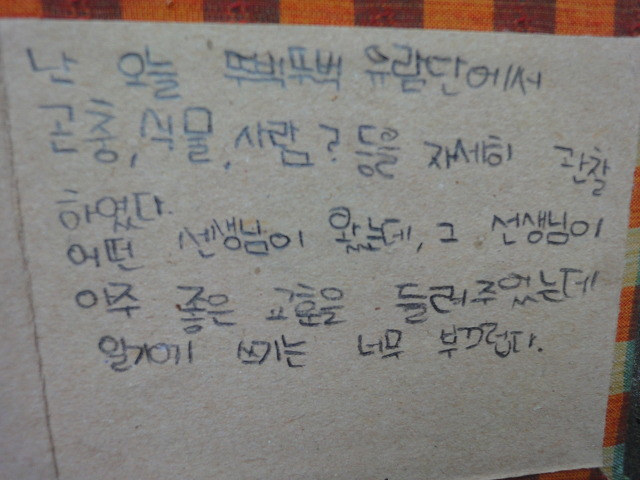 난 오늘 뚜벅뚜벅 유람단에서
곤충, 식물, 사람? 등을 자세히 관찰
하였다.
어떤 선생님이 왔는데, 그 선생님이
아주 좋은 교훈을 들려주었는데
일기에 쓰기는 너무 부끄럽다.